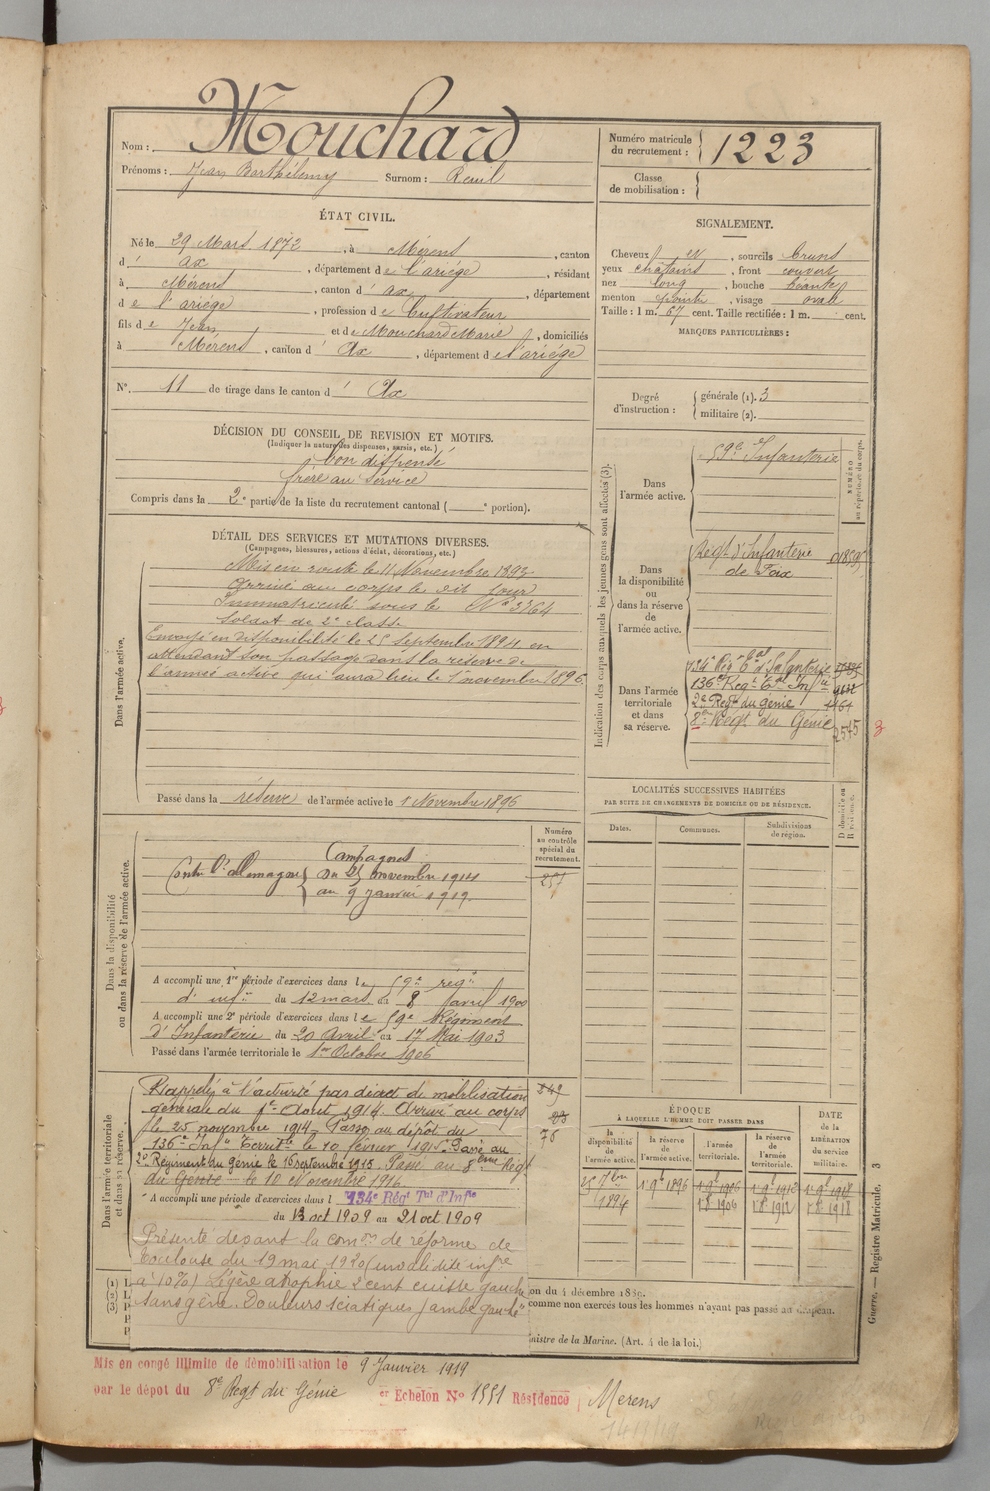 Nom : Mouchard
Prénoms : Jean Barthélemy Surnom : Reuil
Numéro matricule du recrutement : 1223
Classe de mobilisation :
ÉTAT CIVIL.
Né le 29 Mars 1872, à Mérens, canton
d' ax, département de l'ariége, résidant
à Mérens, canton d' ax, département
de l'ariége, profession de Cultivateur
fils de Jean et de Mouchard Marie, domiciliés
à Mérens, canton d' Ax, département de l'ariége
N° 11 de tirage dans le canton d' Ax
SIGNALEMENT.
Cheveux et, sourcils bruns
yeux chatains, front couvert
nez long, bouche béante
menton pointu, visage ovale
Taille : 1 m. 67 cent. Taille rectifiée : 1 m. cent.
MARQUES PARTICULIÈRES :
Degré d'instruction : générale (1). 3
militaire (2).
DÉCISION DU CONSEIL DE REVISION ET MOTIFS.
(Indiquer la nature des dispenses, sursis, etc.)
bon dispensé
frère au service
Compris dans la 2e partie de la liste du recrutement cantonal ( e portion).
DÉTAIL DES SERVICES ET MUTATIONS DIVERSES.
(Campagnes, blessures, actions d'éclat, décorations, etc.)
Dans l'armée active.
Mis en route le 11 Novembre 1893
Arrivé au corps le dit jour
Immatriculé sous le N° 3764
Soldat de 2e classe
Envoyé en disponibilité le 25 Septembre 1894 en
attendant son passage dans la réserve de
l'armée active qui aura lieu le 1 novembre 1896.
Passé dans la réserve de l'armée active le 1 Novembre 1896
Indication des corps auxquels les jeunes gens sont affectés (3).
NUMÉRO au répertoire du corps.
Dans l'armée active.
59e Infanterie
Dans la disponibilité ou dans la réserve de l'armée active.
Regt d'Infanterie
de Foix
Dans l'armée territoriale et dans sa réserve.
134e Rég Tal d'Infanterie
136e Regt Ter Inf
2e Regt du génie
8e Regt du Génie 2545
3
LOCALITÉS SUCCESSIVES HABITÉES
PAR SUITE DE CHANGEMENTS DE DOMICILE OU DE RÉSIDENCE.
Dates. Communes. Subdivisions de région. D domicile ou R résidence.
Dans la disponibilité ou dans la réserve de l'armée active.
Numéro au contrôle spécial du recrutement.
257
Campagnes
Contre l'allemagne du 25 novembre 1914
au 9 janvier 1919.
A accompli une 1re période d'exercices dans le 59e rég
d'infie du 12 mars au 8 avril 1900
A accompli une 2e période d'exercices dans le 59e Régiment
d'Infanterie du 20 Avril au 17 Mai 1903
Passé dans l'armée territoriale le 1er Octobre 1906
Dans l'armée territoriale et dans sa réserve.
Rappelé à l'activité par décret de mobilisation
générale du 1er Aout 1914. Arrivé au corps
le 25 novembre 1914. Passé au dépôt du
136e Infie Territle le 10 février 1915. Passé au
2e Régiment du Génie le 16 septembre 1915. Passé au 8ème Regt
du Génie le 10 Novembre 1916.
A accompli une période d'exercices dans l 134e Régt Tal d'Infie
du 13 oct 1909 au 21 oct 1909
Présenté devant la comon de réforme de
Toulouse du 19 mai 1920 (invalidité infre
à 10%) Légère atrophie 2 cent cuisse gauche
sans gêne. Douleurs sciatiques jambe gauche
76
ÉPOQUE
À LAQUELLE L'HOMME DOIT PASSER DANS
la disponibilité de l'armée active. la réserve de l'armée active. l'armée territoriale. la réserve de l'armée territoriale.
DATE de la LIBÉRATION du service militaire.
25 7bre 1894 1 9e 1896 1 9e 1906 1 9e 1912 1 9e 1918
1 8e 1906 1 8e 1912 1 8e 1918
on du 4 décembre 1889.
comme non exercés tous les hommes n'ayant pas passé au drapeau.
inistre de la Marine. (Art. 4 de la loi.)
Guerre. — Registre Matricule. 3
Mis en congé illimité de démobilisation le 9 Janvier 1919
par le dépot du 8e Regt du Génie er Echelon No 1551 Résidence Merens